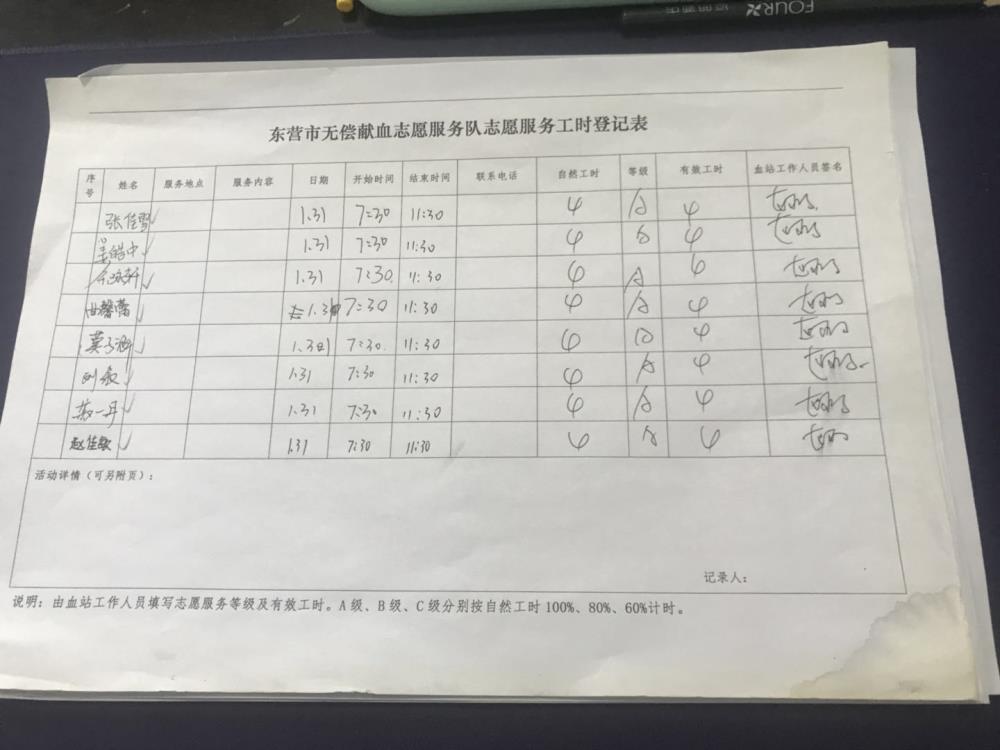 FOUR
东营市无偿献血志愿服务队志愿服务工时登记表
序号 姓名 服务地点 服务内容 日期 开始时间 结束时间 联系电话 自然工时 等级 有效工时 血站工作人员签名
张佳雪 1.31 7:30 11:30 4 A 4
姜皓中 1.31 7:30 11:30 4 4
1.31 7:30 11:30 4 A 4
曲馨蕾 1.31 7:30 11:30 4 A 4
7:30 11:30 4 4
刘 1.31 7:30 11:30 4 A 4
一丹 1.31 7:30 11:30 4 A 4
赵佳敏 1.31 7:30 11:30 4 A 4
活动详情（可另附页）：
记录人：
说明：由血站工作人员填写志愿服务等级及有效工时。A级、B级、C级分别按自然工时100%、80%、60%计时。